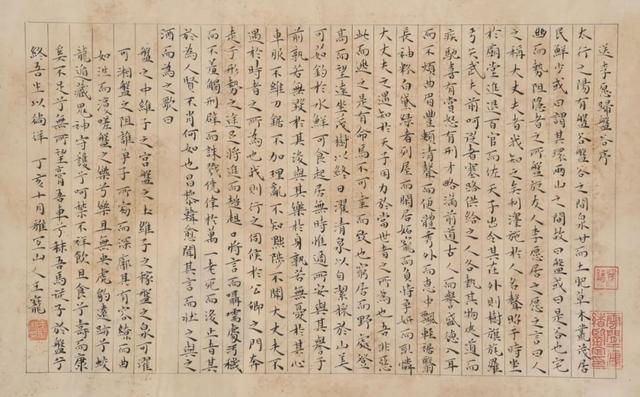 送李愿歸盤谷序
太行之陽有盤谷盤谷之間泉甘而土肥草木藂茂居
民鮮少或曰謂其環兩山之間故曰盤或曰是谷也宅
幽而勢阻隱者之所盤旋友人李愿居之愿之言曰人
之稱大丈夫者我知之矣利澤施於人名聲昭于時坐
於廟堂進退百官而佐天子出令其在外則樹旗旄羅
弓矢武夫前呵從者塞路供給之人各執其物夾道而
疾馳喜有賞怒有刑才畯滿前道古今而譽盛德入耳
而不煩曲眉豐頰清聲而便體秀外而惠中飄輕裾翳
長袖粉白黛綠者列屋而閒居妬寵而負恃爭妍而取憐
大丈夫之遇知於天子用力於當世者之所為也吾非惡
此而逃之是有命焉不可幸而致也窮居而野處登
高而望遠坐茂樹以終日濯清泉以自潔採於山美
可茹釣於水鮮可食起居無時惟適所安與其譽于
前孰若無毀於其後與其樂於身孰若無憂於其心
車服不維刀鋸不加理亂不知黜陟不聞大丈夫不
遇於時者之所為也我則行之伺候於公卿之門奔
走于形勢之途足將進而趑趄口將言而囁嚅處污穢
而不羞觸刑辟而誅戮僥倖於萬一老死而後止者其
於為人賢不肖何如也昌黎韓愈聞其言而壯之與之
酒而為之歌曰
盤之中維子之宮盤之土維子之稼盤之泉可濯
可湘盤之阻誰爭子所窈而深廓其有容繚而曲
如往而復嗟盤之樂兮樂且無央虎豹遠跡兮蛟
龍遁藏鬼神守護兮呵禁不祥飲且食兮壽而康
無不足兮無所望膏吾車兮秣吾馬從子於盤兮
終吾生以徜徉 丁亥十月雅宜山人王寵